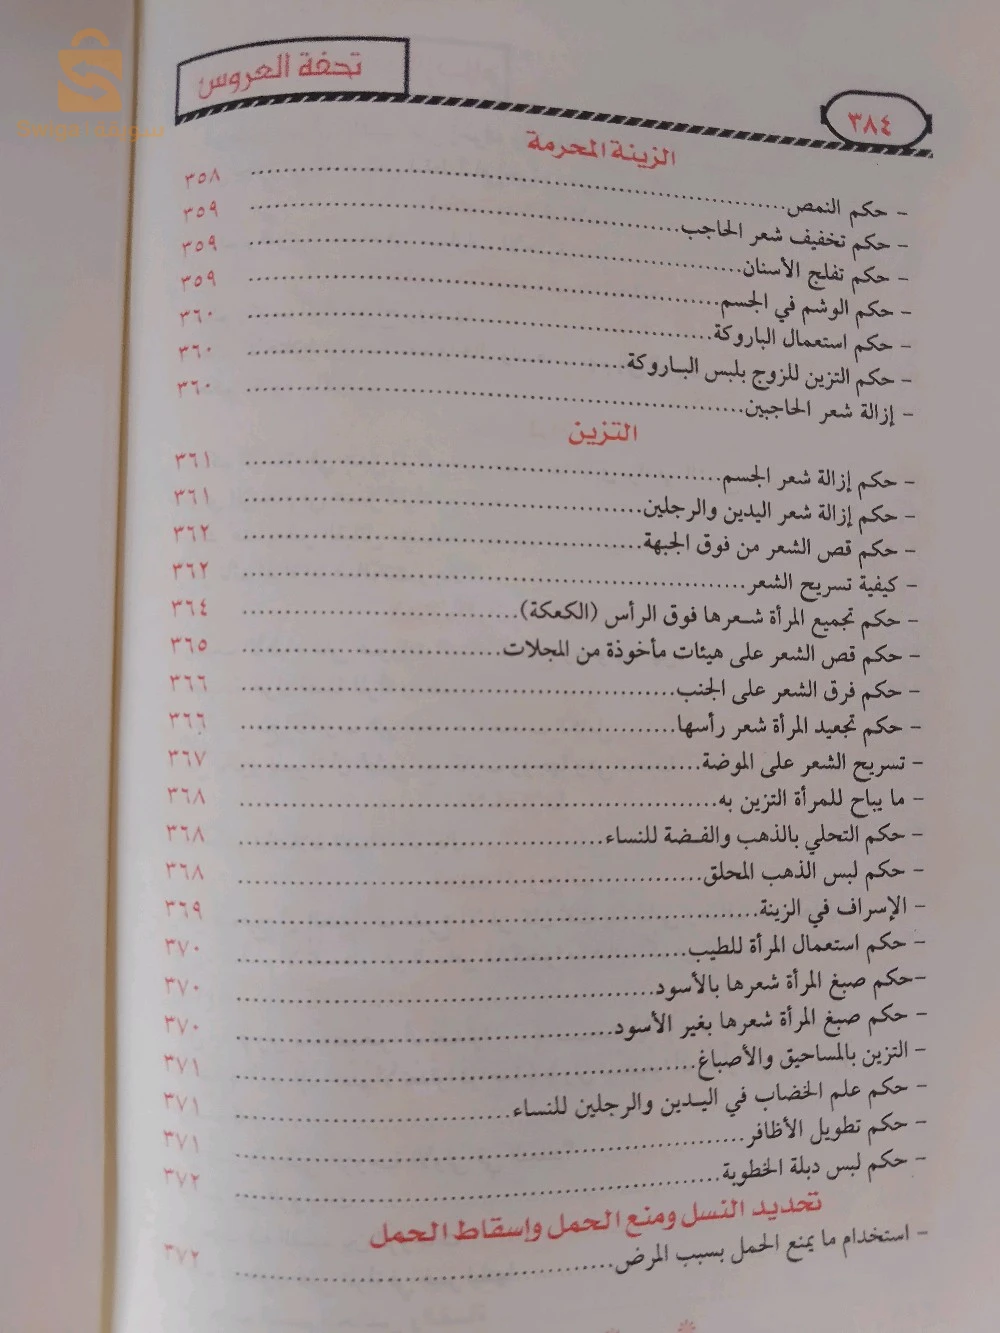 تحفة العروس
٣٨٤
الزينة المحرمة
- حكم النمص ٣٥٨
- حكم تخفيف شعر الحاجب ٣٥٩
- حكم تفلج الأسنان ٣٥٩
- حكم الوشم في الجسم ٣٥٩
- حكم استعمال الباروكة ٣٦٠
- حكم التزين للزوج بلبس الباروكة ٣٦٠
- إزالة شعر الحاجبين ٣٦٠
التزين
- حكم إزالة شعر الجسم ٣٦١
- حكم إزالة شعر اليدين والرجلين ٣٦١
- حكم قص الشعر من فوق الجبهة ٣٦٢
- كيفية تسريح الشعر ٣٦٢
- حكم تجميع المرأة شعرها فوق الرأس (الكعكة) ٣٦٤
- حكم قص الشعر على هيئات مأخوذة من المجلات ٣٦٥
- حكم فرق الشعر على الجنب ٣٦٦
- حكم تجعيد المرأة شعر رأسها ٣٦٦
- تسريح الشعر على الموضة ٣٦٧
- ما يباح للمرأة التزين به ٣٦٨
- حكم التحلي بالذهب والفضة للنساء ٣٦٨
- حكم لبس الذهب المحلق ٣٦٨
- الإسراف في الزينة ٣٦٩
- حكم استعمال المرأة للطيب ٣٧٠
-حكم صبغ المرأة شعرها بالأسود ٣٧٠
- حكم صبغ المرأة شعرها بغير الأسود ٣٧٠
- التزين بالمساحيق والأصباغ ٣٧١
- حكم علم الخضاب في اليدين والرجلين للنساء ٣٧١
- حكم تطويل الأظافر ٣٧١
- حكم لبس دبلة الخطوبة ٣٧٢
تحديد النسل ومنع الحمل وإسقاط الحمل
- استخدام ما يمنع الحمل بسبب المرض ٣٧٢